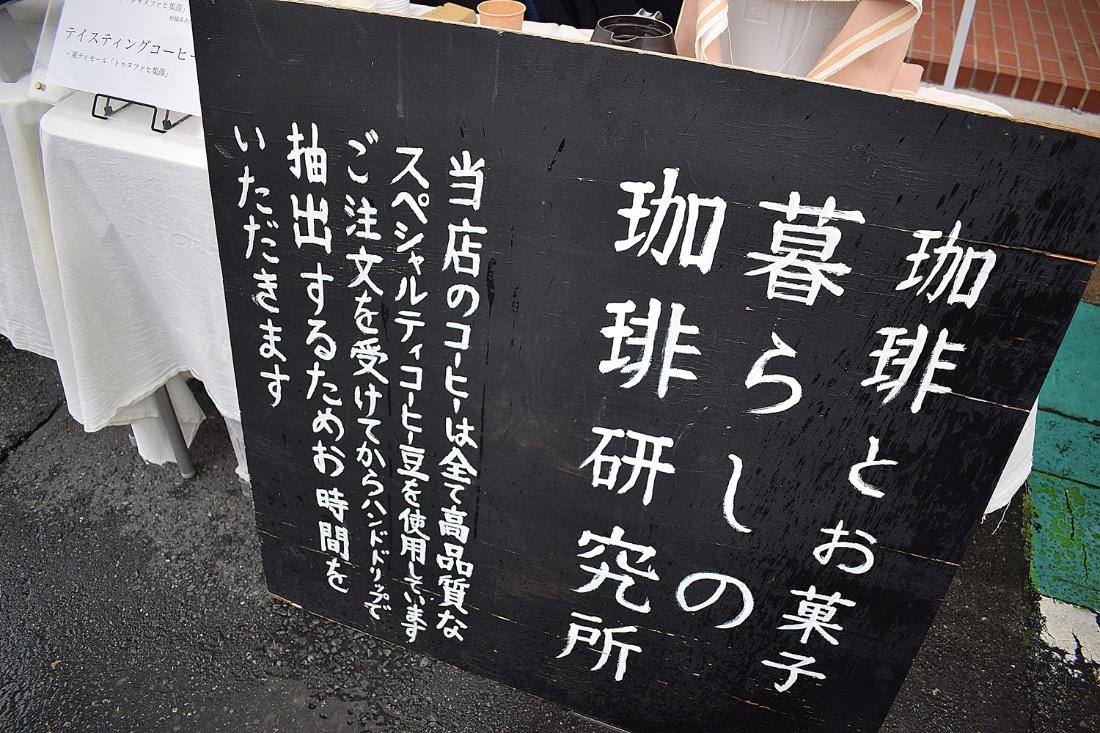 珈琲とお菓子
暮らしの
珈琲研究所
当店のコーヒーは全て高品質な
スペシャルティコーヒー豆を使用しています
ご注文を受けてからハンドドリップで
抽出するためお時間を
いただきます
テイスティングコーヒー
・東ティモール「トゥヌファヒ集落」